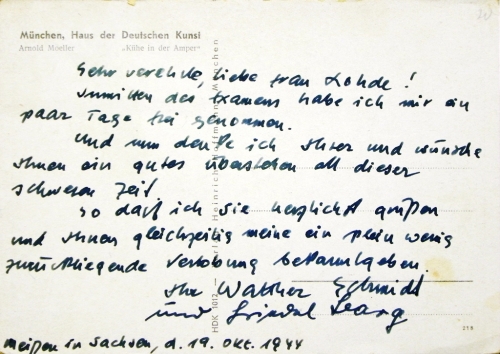 München, Haus der Deutschen Kunst
Arnold Moeller „Kühe in der Amper"
Sehr verehrte, liebe Frau Rohde!
Inmitten des Examens habe ich mir ein
paar Tage frei genommen.
Und nun denke ich Ihrer und wünsche
Ihnen ein gutes Überstehen all dieser
schweren Zeit.
So darf ich Sie herzlichst grüßen
und Ihnen gleichzeitig meine ein klein wenig
zurückliegende Verlobung bekanntgeben.
Ihr Walther Schmidt
und
Meißen in Sachsen, d. 19. Okt. 1944
HDK 3012 — Verlag Heinrich Hoffmann, München